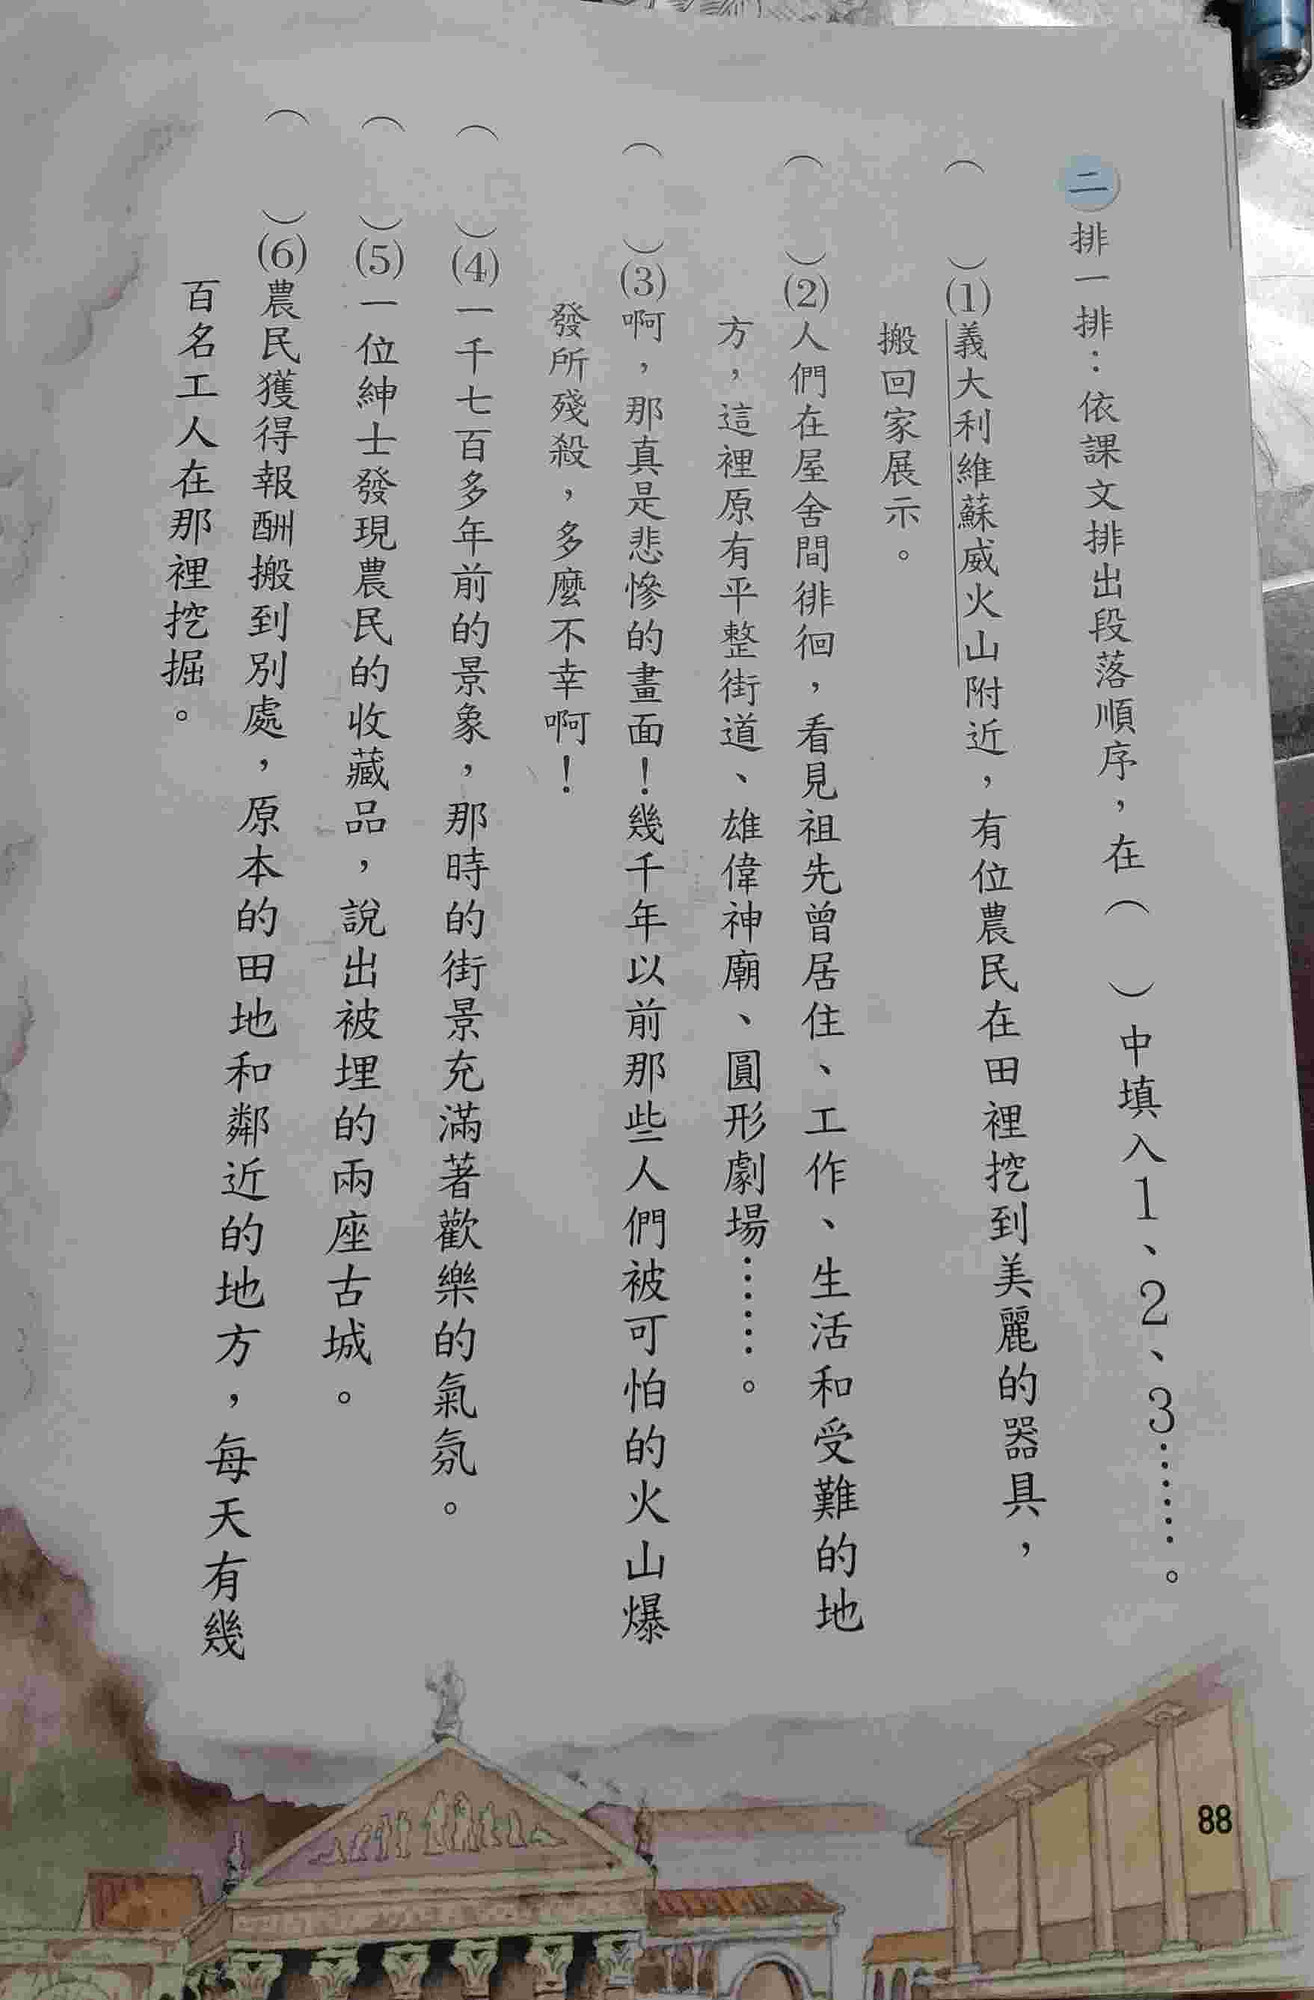 二 排一排：依課文排出段落順序，在（　）中填入1、2、3……。
（　）(1)義大利維蘇威火山附近，有位農民在田裡挖到美麗的器具，
搬回家展示。
（　）(2)人們在屋舍間徘徊，看見祖先曾居住、工作、生活和受難的地
方，這裡原有平整街道、雄偉神廟、圓形劇場……。
（　）(3)啊，那真是悲慘的畫面！幾千年以前那些人們被可怕的火山爆
發所殘殺，多麼不幸啊！
（　）(4)一千七百多年前的景象，那時的街景充滿著歡樂的氣氛。
（　）(5)一位紳士發現農民的收藏品，說出被埋的兩座古城。
（　）(6)農民獲得報酬搬到別處，原本的田地和鄰近的地方，每天有幾
百名工人在那裡挖掘。
88